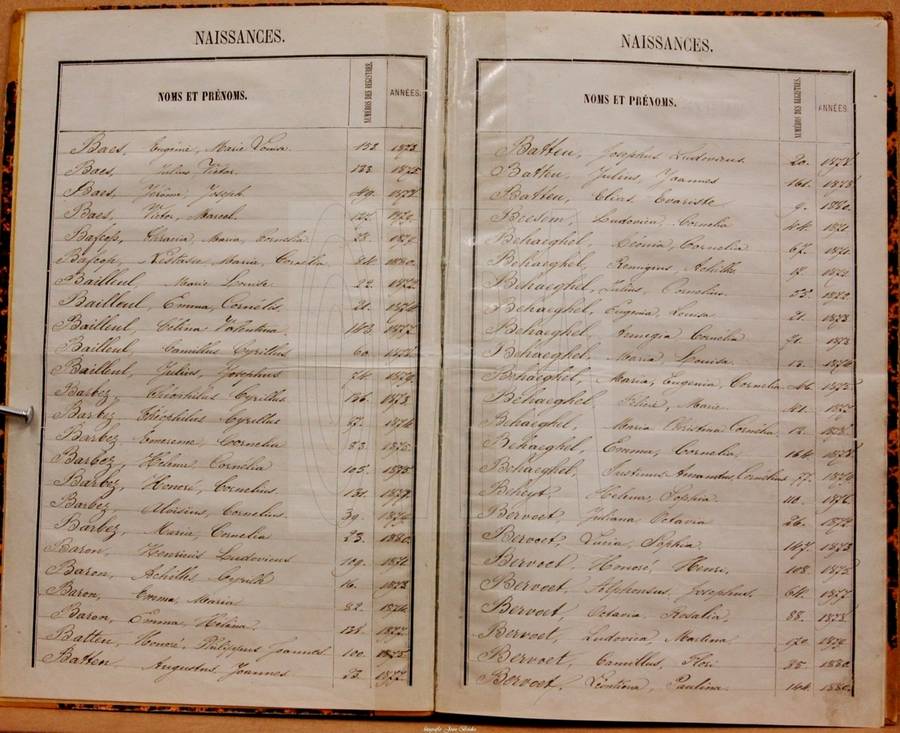 NAISSANCES.
NOMS ET PRÉNOMS. NUMÉROS DES REGISTRE. ANNÉES.
Baes, Eugénie, Marie Louisa. 1873
Baes, Julius Victor. 133. 1875
Baes, Jérôme, Joseph 49.
Baes, Victor, Marcel.
Maria, Cornelia 1879
Maria, Cornelia 84. 1880.
Bailleul, Marie Louise 22. 1872
Bailleul, Emma, Cornélis. 21. 1876
Bailleul, Célina Valentina. 143. 1877
Bailleul, Camillus Cyrillus 60.
Bailleul, Julius, Josephus 74. 1879.
Barbez, Théophilus Cyrillus 126. 1873
Barbez, Théophilus Cyrillus 67. 1874
Barbez, Cornelia 83. 1875.
Barbez, Helena Cornelia 105.
Barbez, Honoré, Cornelius. 131. 1877
Barbez, Aloïsius, Cornelius. 39.
Barbez, Maria, Cornelia 23. 1880.
Baron, Henricus Ludovicus 109.
Baron, Achilles, Cyrille 16. 1873
Baron, Emma, Maria 82. 1874
Baron, Emma, Helina. 131. 1877
Batteu, Honoré, Philippus Joannes 100. 1875
Batteu, Augustus, Joannes 23. 1877.
NAISSANCES.
NOMS ET PRÉNOMS. NUMÉROS DES REGISTRE. ANNÉES.
Batteu, Josephus Ludovicus. 20. 1878
Batteu, Julius, Joannes 161. 1878
Batteu, Elias, Evariste 9. 1880.
Ludovica, Cornelia 44. 1871
Behaeghel, Léonia, Cornelia 67. 1871.
Behaeghel, Remigius, Achille
Behaeghel, Julius, Cornelius 1872
Behaeghel, Eugenia, Louisa. 21. 1873
Behaeghel, Cornélia 1873
Behaeghel, Maria Louisa. 13. 1874
Behaeghel, Maria, Eugenia, Cornelia 1875
Behaeghel, Marie. 41.
Behaeghel, Maria Christina Cornélia 12.
Behaeghel, Emma, Cornelia. 164. 1878
Behaeghel, Justinus Amandus, Cornélius 77. 1879
Helena, Sophia. 10. 1876
Bervoet, Juliana Octavia 26. 1872
Bervoet, Lucia, Sophia. 147. 1873
Bervoet, Honoré, Henri. 108. 1875
Bervoet, Alphonsus, Josephus. 64. 1877
Bervoet, Octavia Rosalia. 88. 1878
Bervoet, Ludovica Martina. 170. 1879.
Bervoet, Camillus, Flori 85. 1880.
Bervoet, Leontiona, Paulina. 144. 1880.